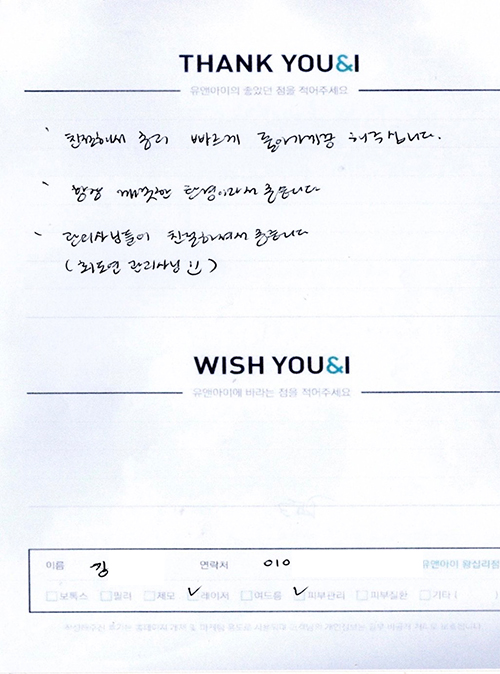 THANK YOU&I
유앤아이의 좋았던 점을 적어주세요
친절해서 빠르게 돌아가게끔 해주십니다.
항상 깨끗한 환경이라서 좋습니다
관리사님들이 친절하셔서 좋습니다
(최도연 관리사님 :))
WISH YOU&I
유앤아이에 바라는 점을 적어주세요
이름 김 연락처 010 유앤아이 왕십리점
보톡스 필러 제모 레이저 여드름 피부관리 피부질환 기타 ( )